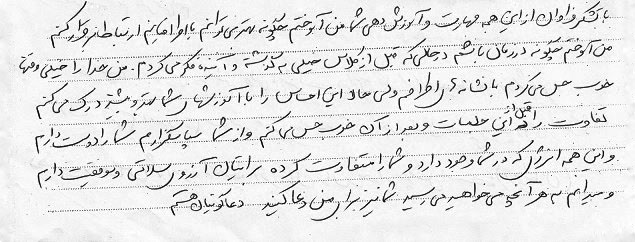 با تشکر فراوان از این همه مهارت و آموزش دهی شما من آموختم چگونه بهتر می توانم با افراد خانواده ارتباط برقرار کنم
من آموختم چگونه در زمان حال باشم در حالی که قبل از کلاس خیلی به گذشته و آینده فکر می کردم. من خدا را خیلی وقتها
خوب حس می کردم با نشانه های اطرافم ولی حالا این احساس را با آموزشهای شما بهتر و بیشتر درک می کنم
تفاوت را قبل از این جلسات و بعد از آن خوب حس می کنم و از شما سپاسگزارم شما را دوست دارم
و این همه انرژی که در شما وجود دارد و شما را متفاوت کرده برایتان آرزوی سلامتی و موفقیت دارم
و میدانم به هر آنچه می خواهید می رسید شما نیز برای من دعا کنید دعاگویتان هستم